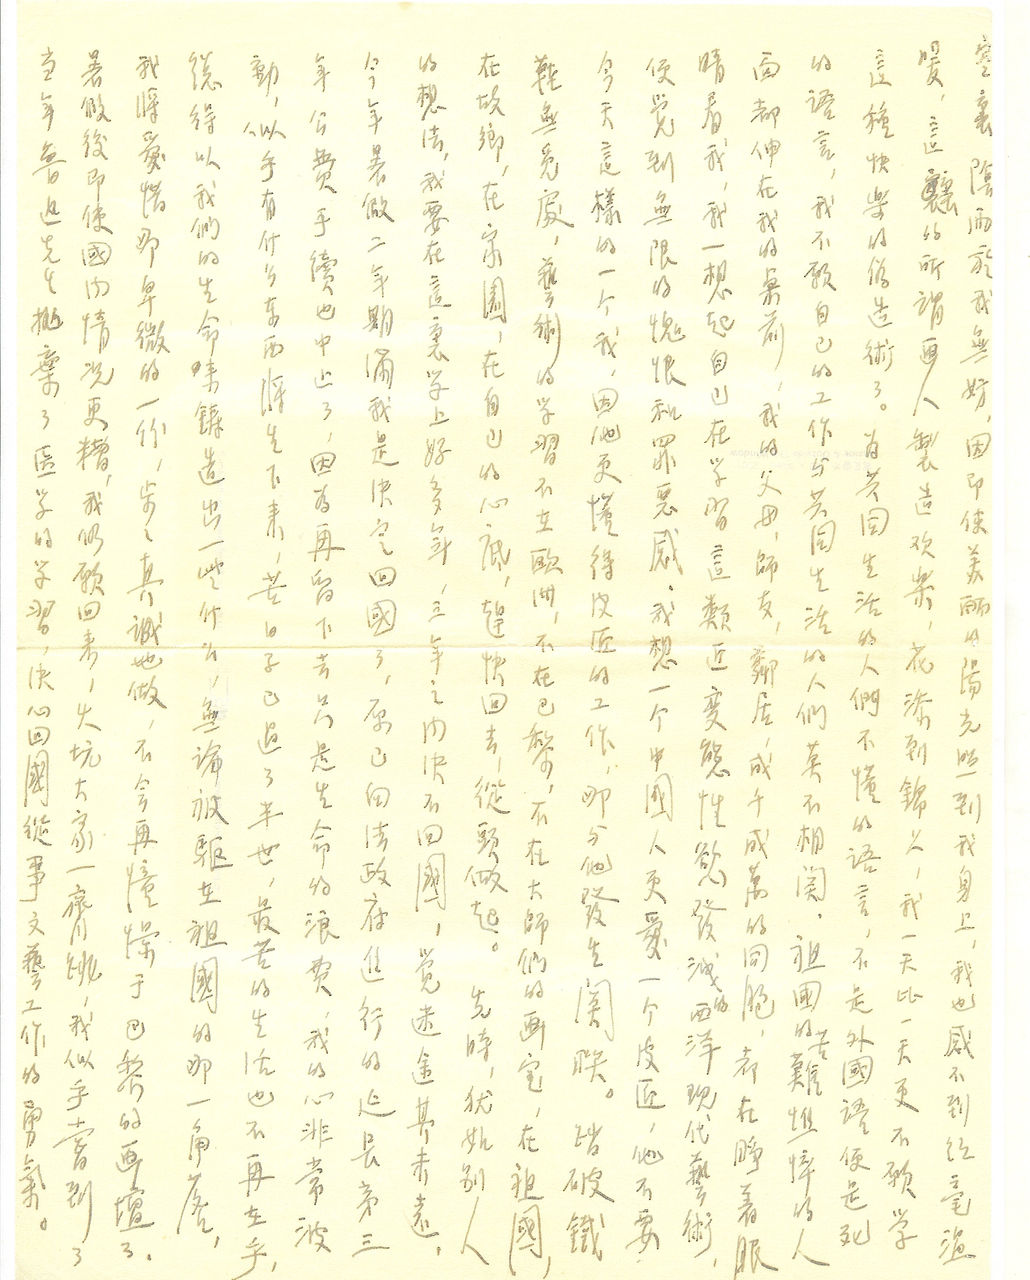 窒裏陰雨於我無妨，因即使美丽的陽光照到我身上，我也感不到絲毫温
暖，這裏的所謂画人製造欢樂，花添到錦上，我一天比一天更不願学
這種快樂的偽造術了。为共同生活的人們不懂的語言，不是外國語便是死
的語言，我不願自己的工作与共同生活的人們莫不相関。祖国的苦難憔悴的人
面都伸在我的桌前，我的父母，師友，鄰居，成千成萬的同胞，都在睁着眼
睛看我，我一想起自己在学習這類近变態性慾發洩的西洋現代藝術，
便觉到無限的愧恨和罪惡感，我想一个中國人更爱一个皮匠，他不要
今天這樣的一个我，因他更懂得皮匠的工作，那与他發生関联。踏破鐵
鞋無覓處，藝術的学習不在歐洲，不在巴黎，不在大師們的画室，在祖國，
在故鄉，在家園，在自己的心底，趕快回去，從頭做起。先時，犹如别人
的想法，我要在這裏学上好多年，三年之内决不回國，觉迷途其未遠，
今年暑假二年期满我是决定回國了，原已向法政府進行的延長第三
年公費手續也中止了，因為再留下去只是生命的浪費，我的心非常波
動，似乎有什么東西將生下来，苦日子已过了半世，最苦的生活也不再在乎，
總得以我們的生命来鑄造出一些什么，無論被驅在祖國的那一角落，
我將爱惜那卑微的一份，步々真誠地做，不会再憧憬于巴黎的画壇了。
暑假後即使國内情況更糟，我仍願回来，火坑大家一齊跳，我似乎嘗到了
当年魯迅先生拋棄了医学的学習，决心回國從事文藝工作的勇氣。